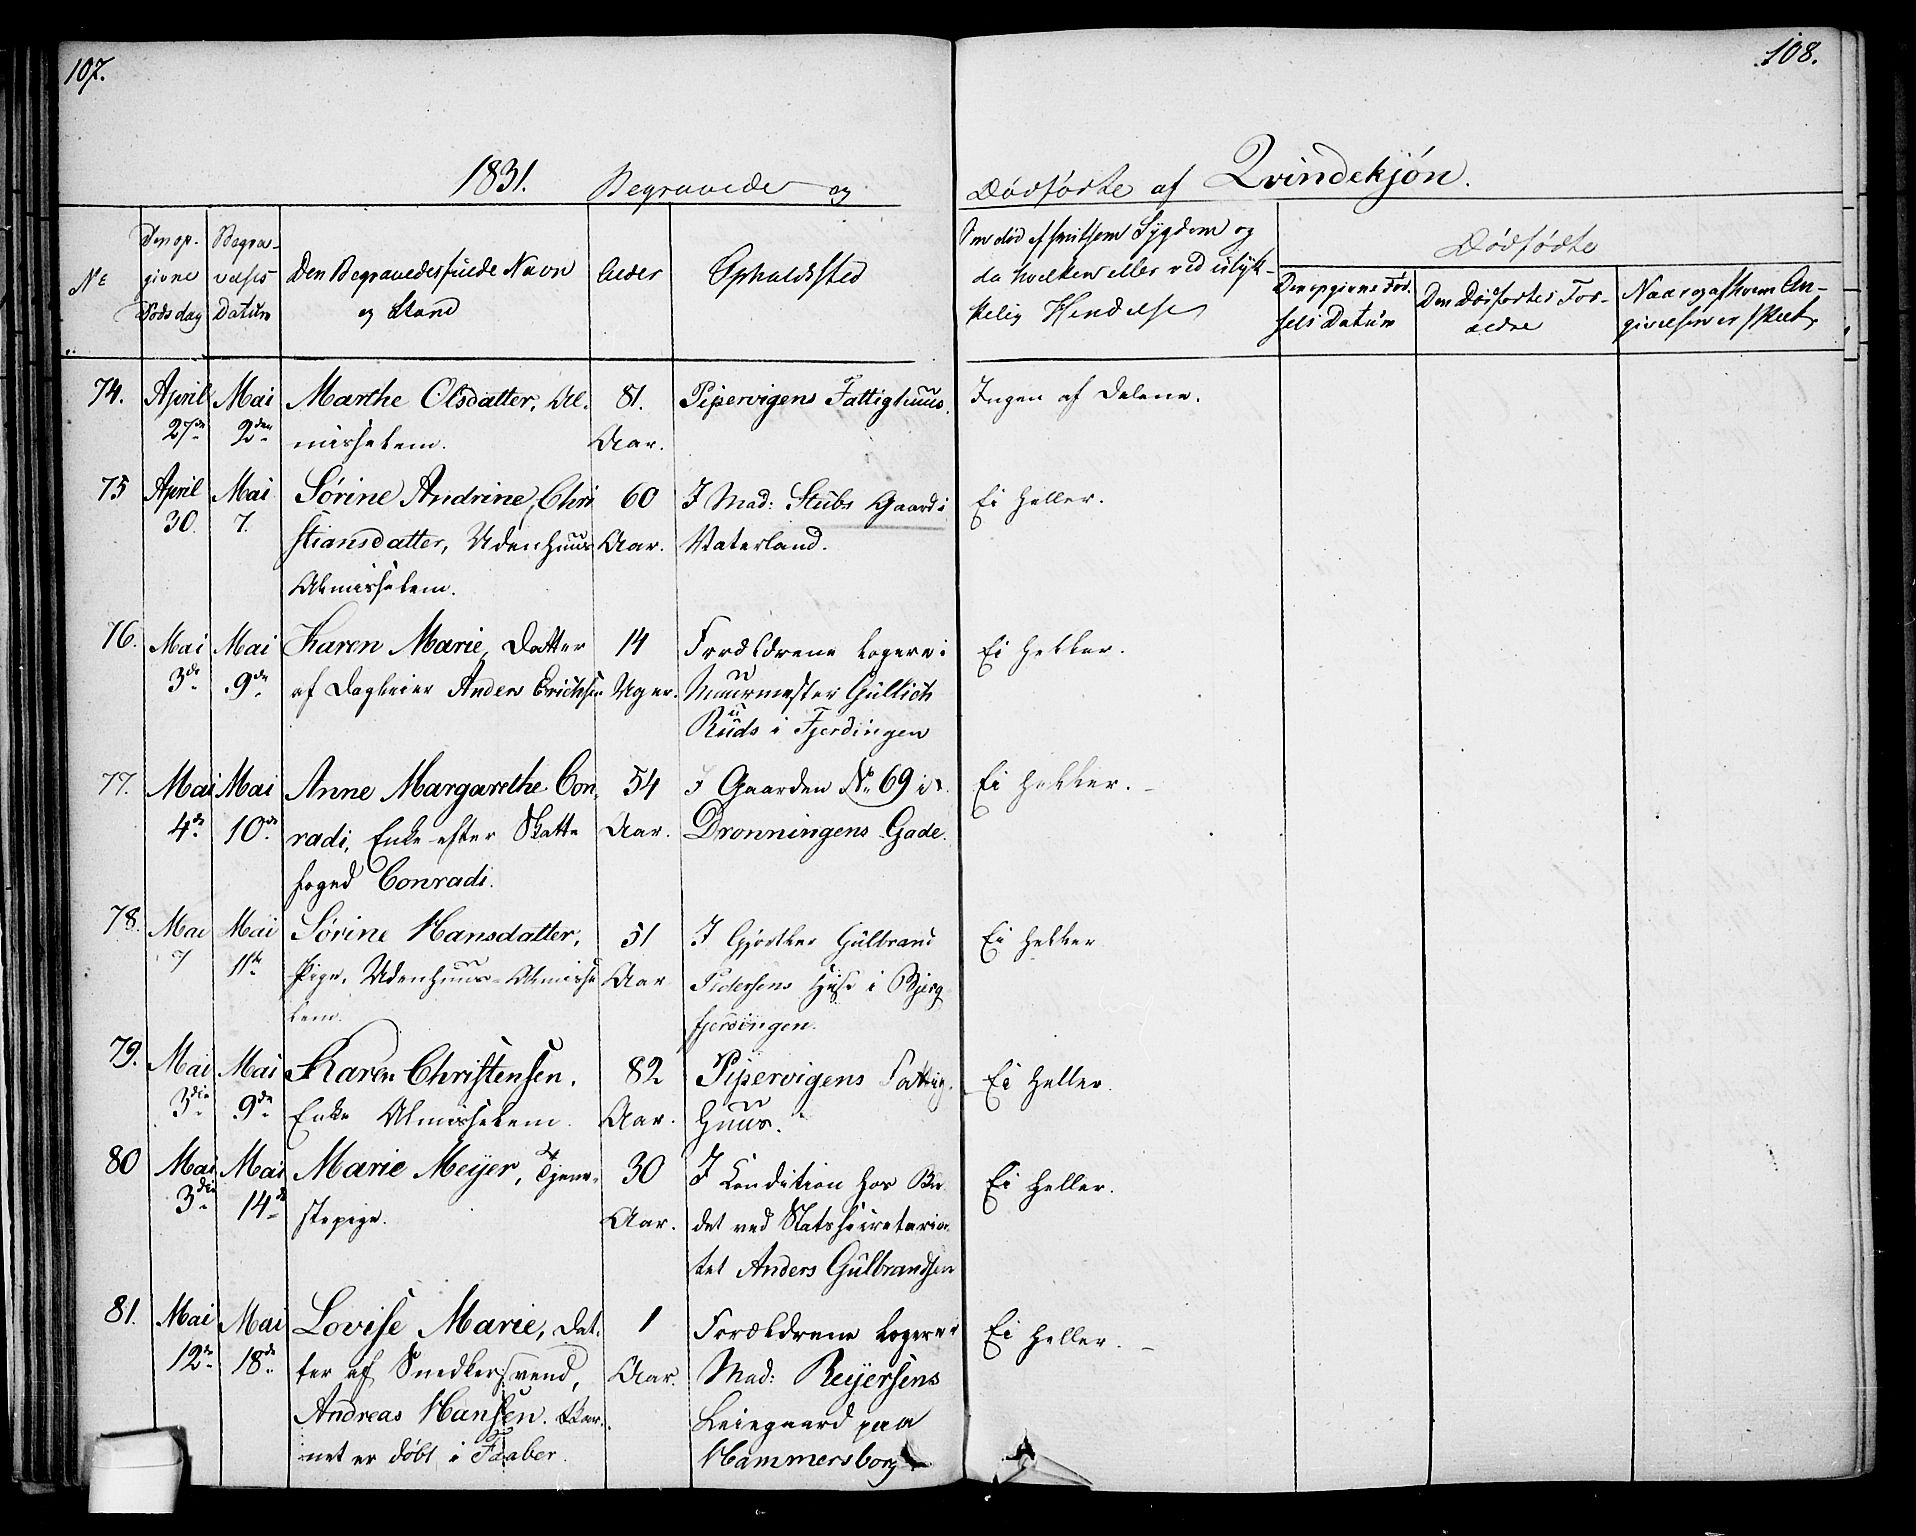 107.
108.
1831. Begravede og Dødfødte af Qvindekjøn.
Nº
Den op-
givne
Dødsdag
Begra-
velses
Datum
Den Begravedes fulde Navn
og Stand
Alder
Opholdssted
Om død af smitsom Sygdom og
da hvilken eller ved ulyk-
kelig Hendelse
Dødfødte
Den opgivne Fød-
sels Datum
Den Dødfødtes For-
ældre
Naar og af hvem An-
givelsen er skeet.
74. April 27de Mai 2den Marthe Olsdatter, Al-
misselem.
81.
Aar.
Pipervigens Fattighuus.
Ingen af Delene.
75 April 30. Mai 7. Sørine Andrine Chri
stiansdatter, Udenhuus
Almisselem.
60
Aar.
I Mad: Stubs Gaard i
Vaterland.
Ei heller.
76. Mai 3de Mai 9de Karen Marie, Datter
af Dagleier Anders Erichsen
14
Uger.
Forældrene logere i
Muurmester Gullich
Ruds i Fjerdingen
Ei heller.
77. Mai 4de Mai 10de Anne Margarethe Con-
radi, Enke efter Skatte
foged Conradi.
54
Aar.
I Gaarden No 69 i
Dronningens Gade.
Ei heller.
78. Mai 7 Mai 11te Sørine Hansdatter,
Pige, Udenhuus-Almisse
lem.
51
Aar
I Gjørtler Gulbrand
Pedersens Huse i Bjerg
fjerdingen.
Ei heller
79. Mai 3die Mai 9de Karen Christensen,
Enke Almisselem.
82
Aar.
Pipervigens Fattig-
Huus.
Ei heller.
80 Mai 3die Mai 14de Marie Meyer, Tjene-
stepige.
30
Aar.
I Condition hos Bu
det ved Statssecretaria-
tet Anders Gulbrandsen
Ei heller.
81. Mai 12te Mai 18de Lovise Marie, Dat-
ter af Snedkersvend,
Andreas Hansen. Bar-
net er døbt i Faaber.
1
Aar.
Forældrene logere i
Mad: Reyersens
Leiegaard paa
Hammersborg
Ei heller.